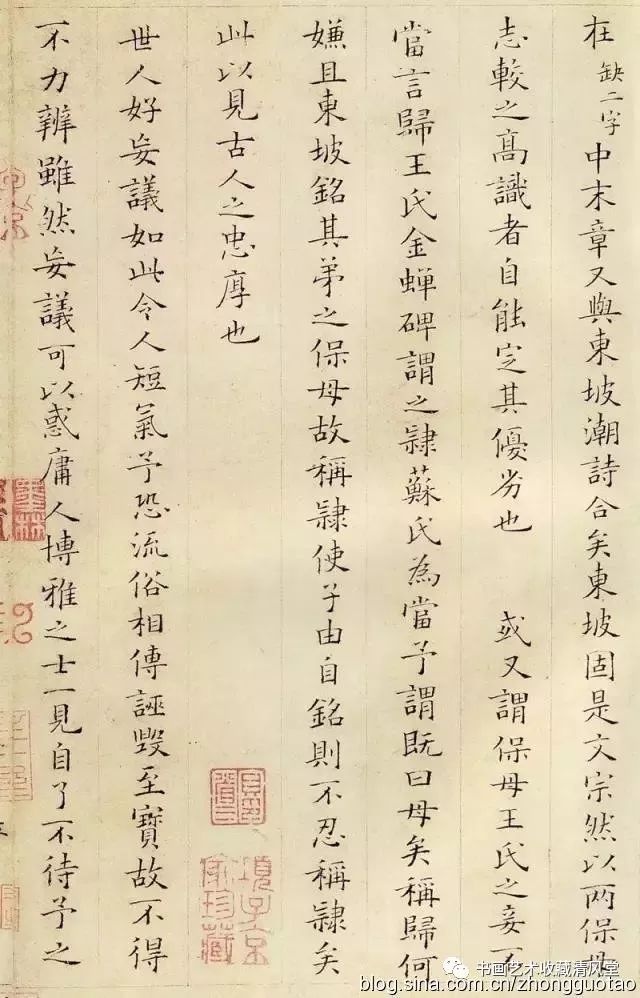 在缺二字中末章又與東坡潮詩合矣東坡固是文宗然以两保母
志較之高識者自能定其優劣也 或又謂保母王氏之妾不
當言歸王氏金蟬碑謂之隷蘇氏為當予謂既曰母矣稱歸何
嫌且東坡銘其弟之保母故稱隷使子由自銘則不忍稱隷矣
此以見古人之忠厚也
世人好妄議如此令人短氣予恐流俗相傳誣毀至寶故不得
不力辨雖然妄議可以惑庸人博雅之士一見自了不待予之
項子京
家珍藏
书画艺术收藏清风堂
blog.sina.com.cn/zhongguotao